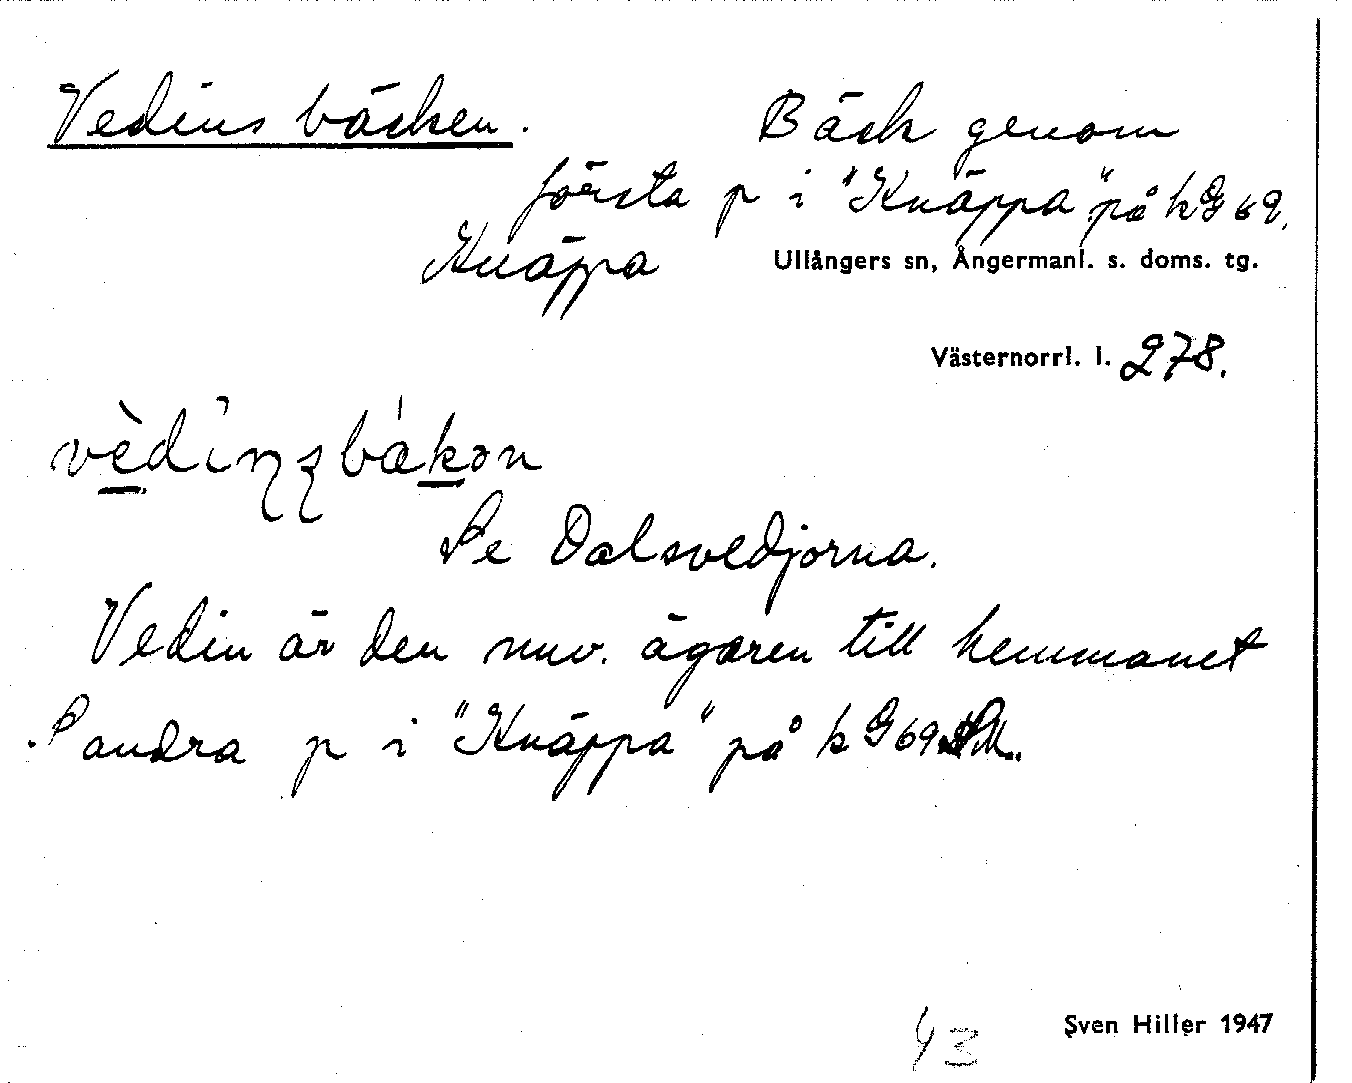 Vedins bäcken. Bäck genom
första p i "Knäppa" på k G 69.
Knäppa Ullångers sn, Ångermanl. s. doms. tg.
Västernorrl. l. 278.
Se Dalsvedjorna.
Vedin är den nuv. ägaren till hemmanet
andra p i "Knäppa" på k G 69
43 Sven Hiller 1947